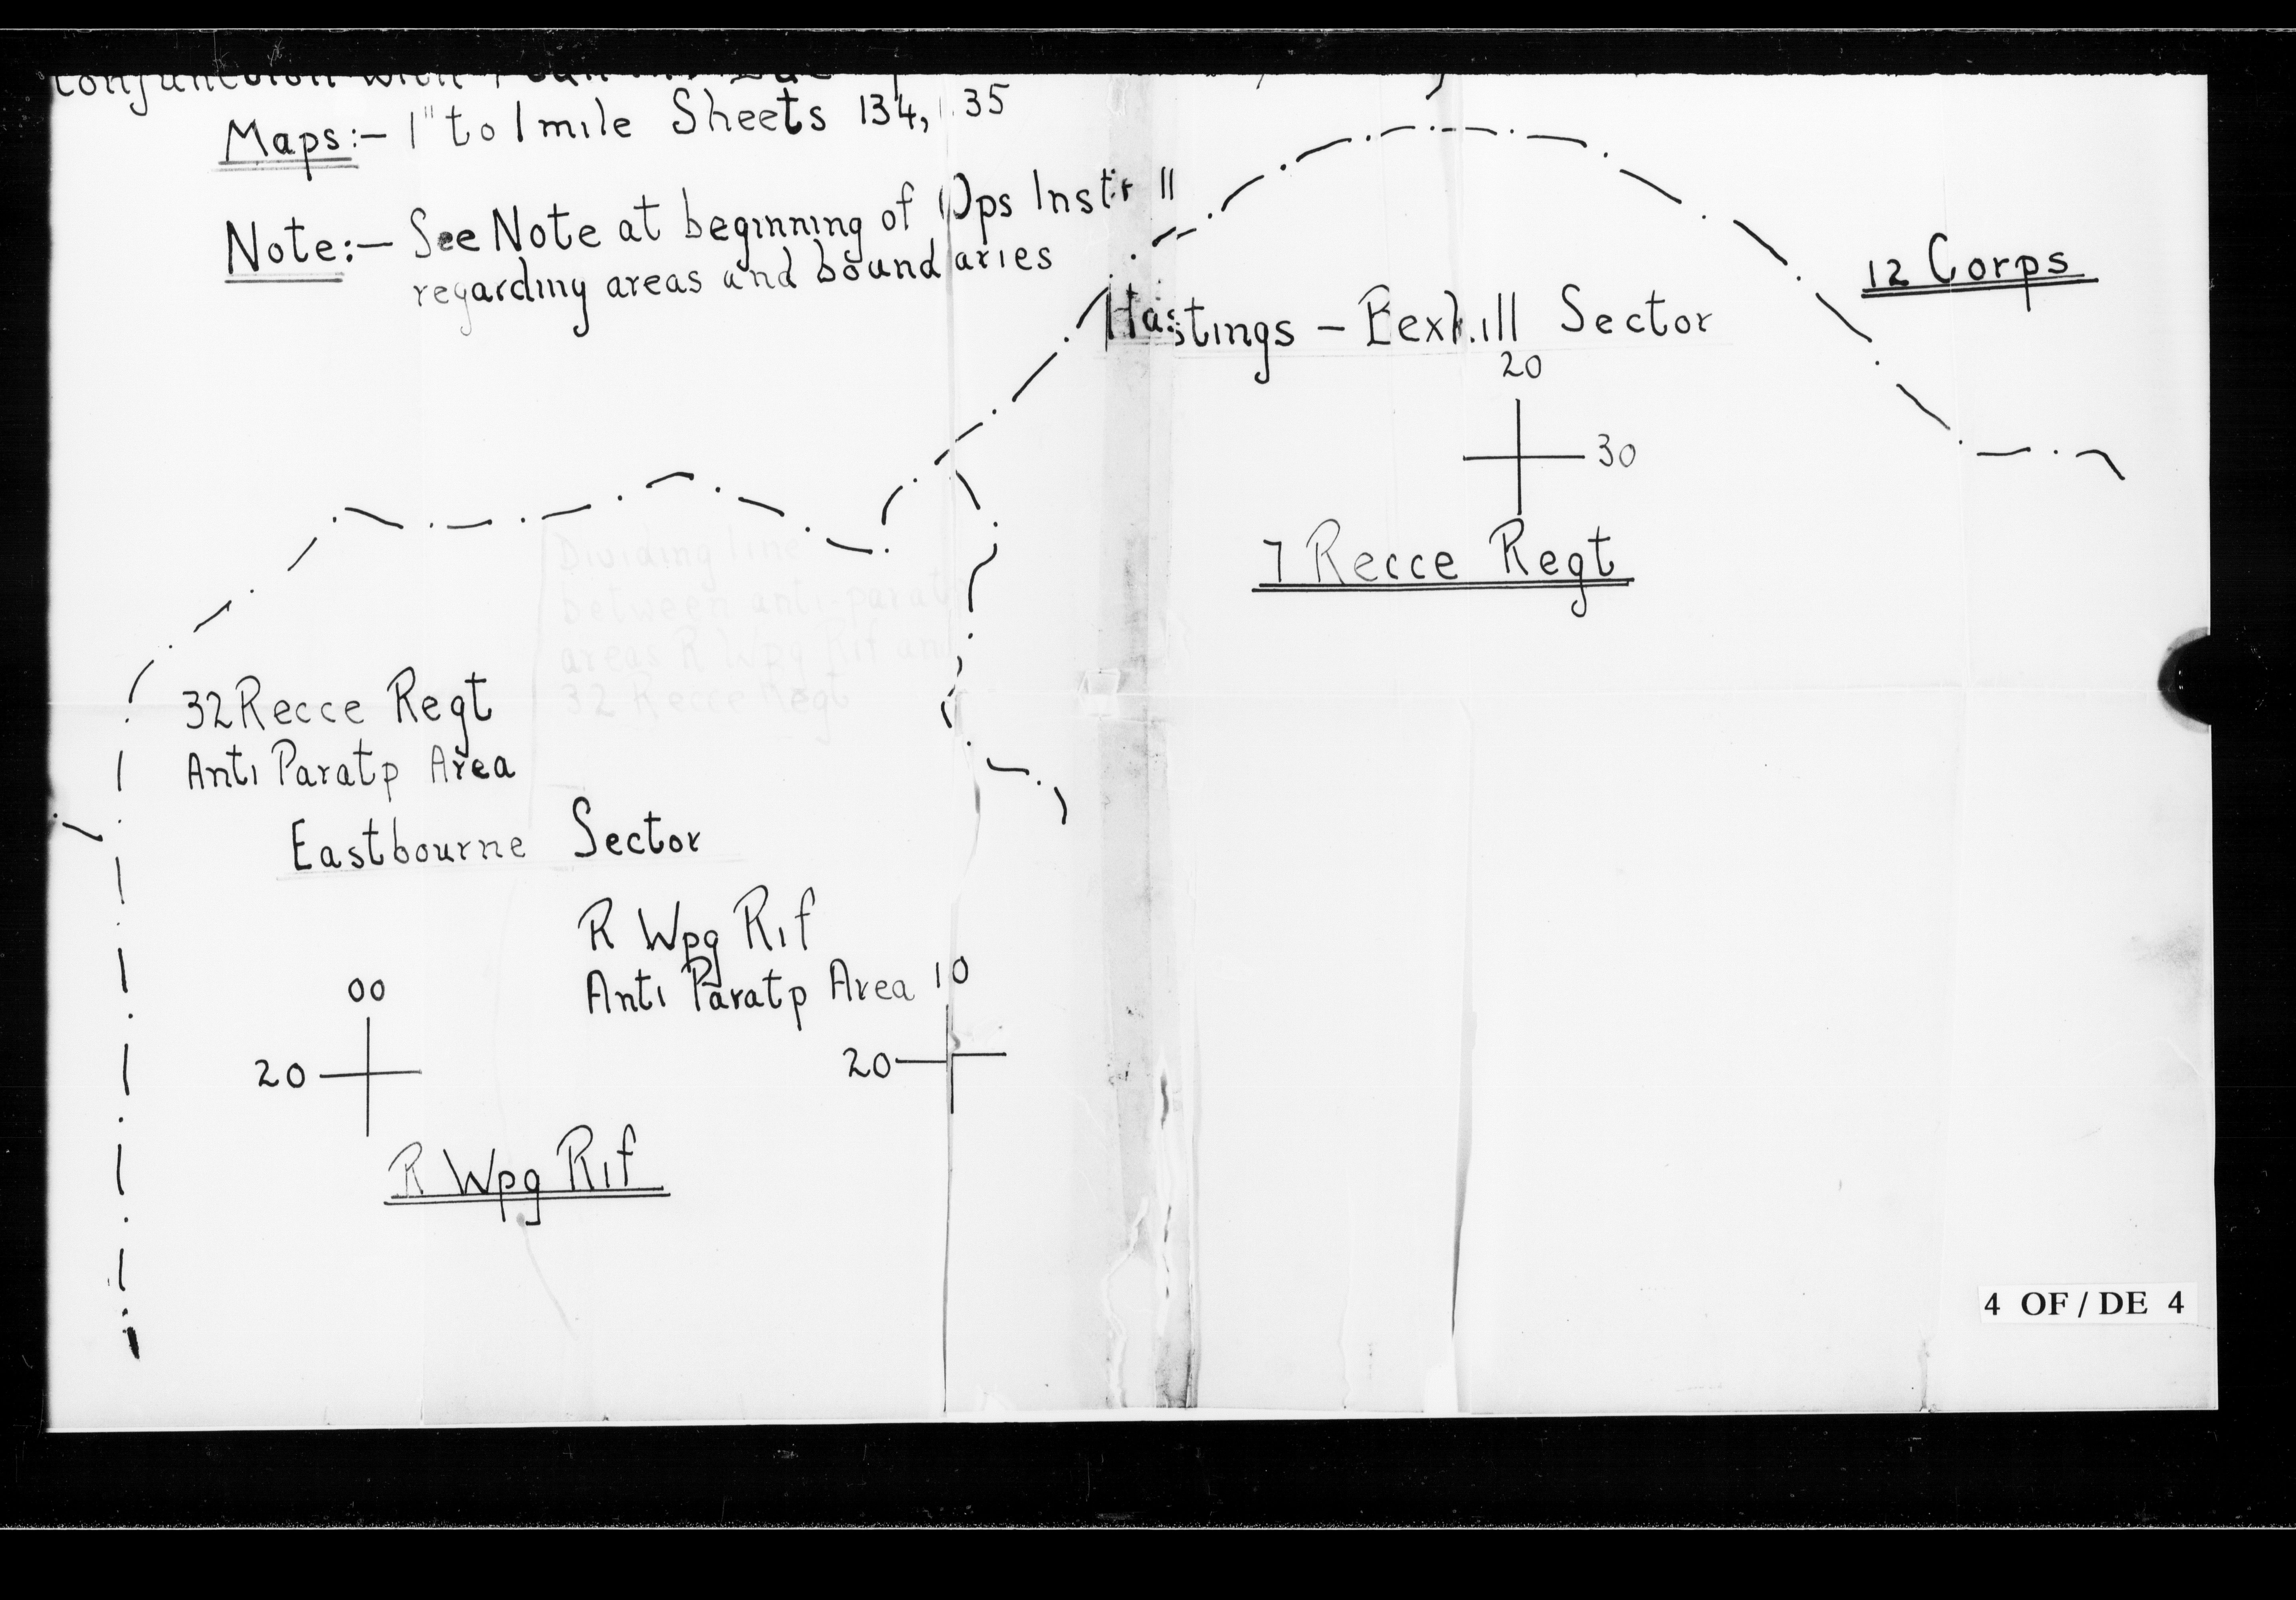 Conjunction with
Maps:- 1" to 1 mile Sheets 134, 135
Note:- See Note at beginning of Ops Instr 11
regarding areas and boundaries
12 Corps
Hastings - Bexhill Sector
20
30
7 Recce Regt
Dividing line
between anti-parat
areas R Wpg Rif and
32 Recce Regt
32 Recce Regt
Anti Paratp Area
Eastbourne Sector
R Wpg Rif
Anti Paratp Area
10
00
20
20
R Wpg Rif
4 OF / DE 4